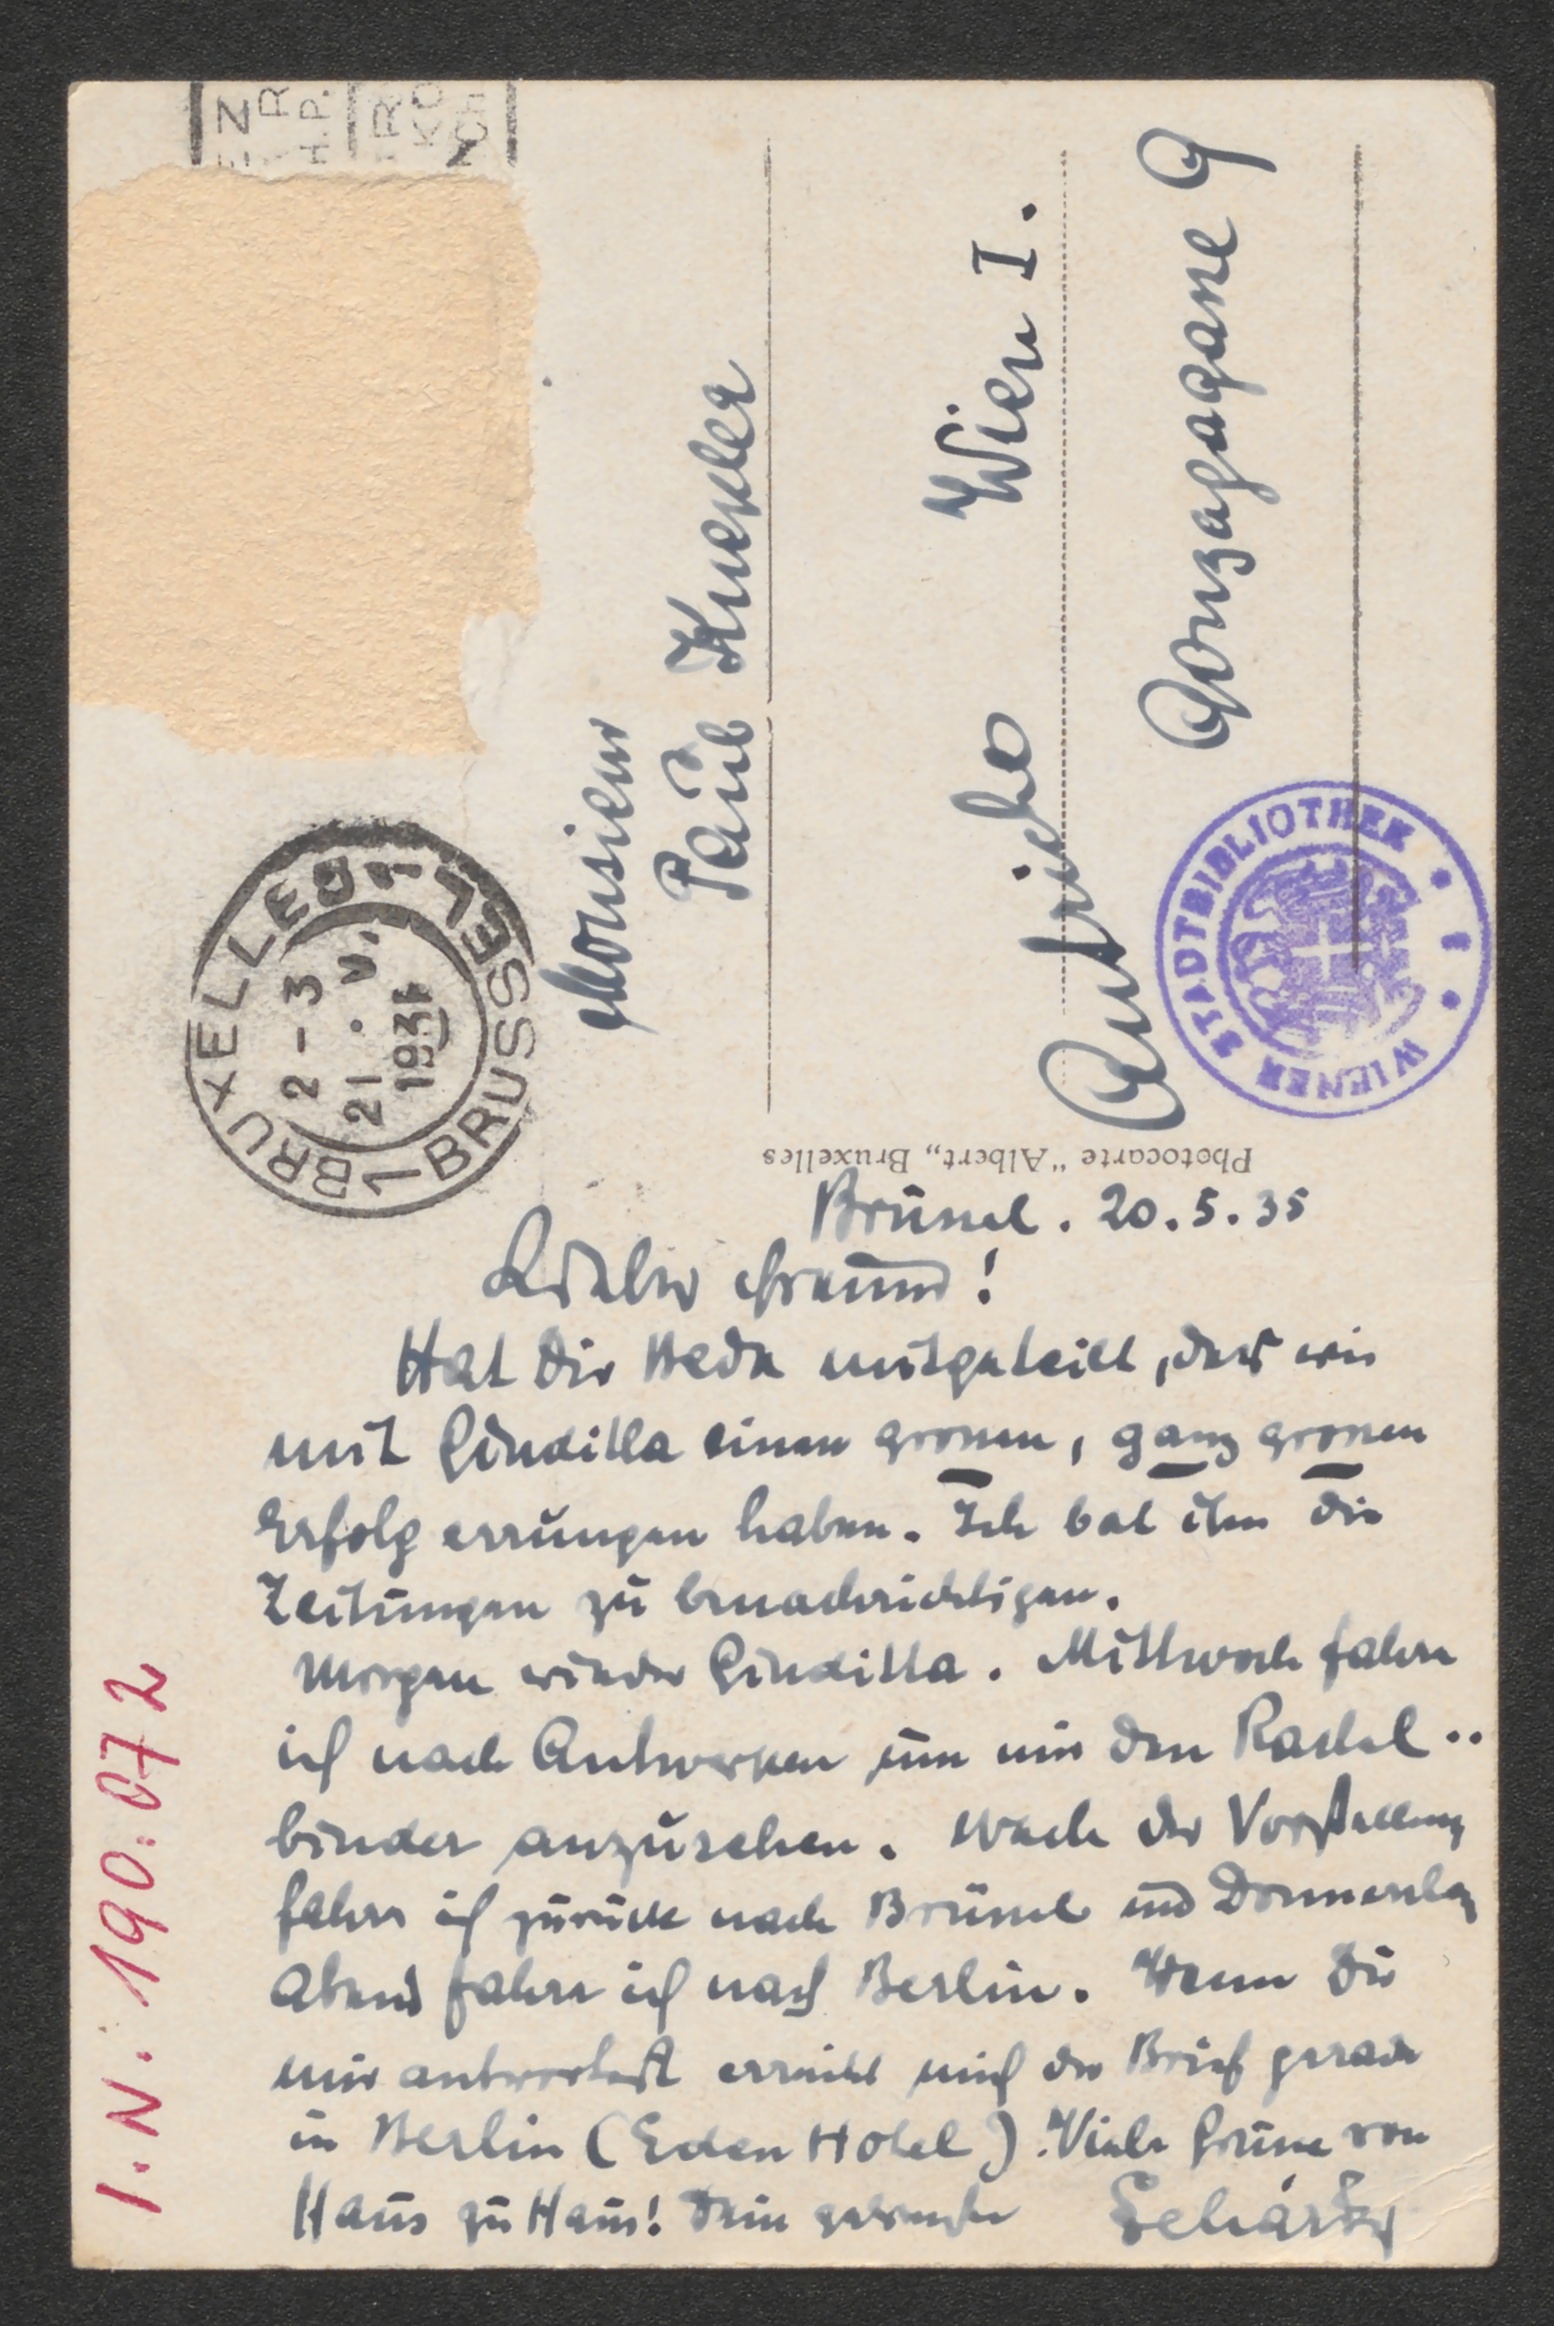 Monsieur
Paul Knepler
Wien I.
Autriche
Gonzagagasse 9
BRUXELLES
2-3
21.V.
193
1 BRUSSEL
WIENER STADTBIBLIOTHEK
Photocarte "Albert,, Bruxelles
Brüssel. 20.5.35
Lieber Freund!
Hat Dir Heda mitgeteilt, dass wir
mit Giuditta einen grossen, ganz grossen
Erfolg errungen haben. Ich bat ihn die
Zeitungen zu benachrichtigen.
Morgen wieder Giuditta. Mittwoch fahre
ich nach Antwerpen um mir den Rastel-
binder anzusehen. Nach der Vorstellung
fahre ich zurück nach Brüssel und Donnerstag
Abend fahre ich nach Berlin. Wenn Du
mir antwortest erreicht mich der Brief gerade
in Berlin (Eden Hotel). Viele Grüsse von
Haus zu Haus! Dein getreuer Lehár
I.N. 190.072